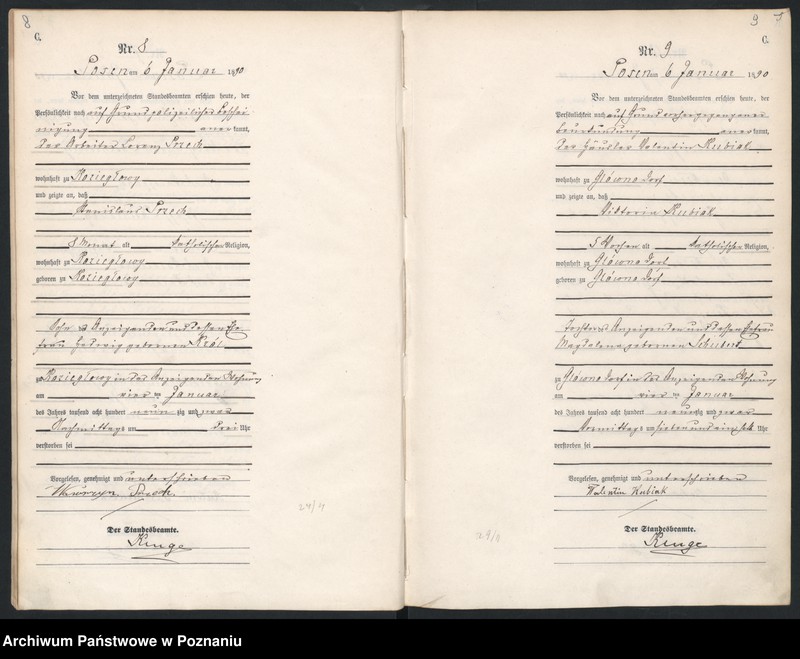 8
C.
Nr. 8
Posen am 6 Januar 1890
Vor dem unterzeichneten Standesbeamten erschien heute, der
Persönlichkeit nach auf Grund polizeilicher Beschei
nigung anerkannt,
der Arbeiter Lorenz
wohnhaft zu Koziegłowy
und zeigte an, daß
Stanislaus
8 Monat alt katholischer Religion,
wohnhaft zu Koziegłowy
geboren zu Koziegłowy
Sohn des Anzeigenden und dessen Ehe
frau Hedwig geborenen Król
zu Koziegłowy in des Anzeigenden Wohnung
am vier ten Januar
des Jahres tausend acht hundert neunzig und zwar
Nachmittags um drei Uhr
verstorben sei
Vorgelesen, genehmigt und unterschrieben
Wawrzyn
Der Standesbeamte.
Runge
24/11
9
C.
Nr. 9
Posen am 6 Januar 1890
Vor dem unterzeichneten Standesbeamten erschien heute, der
Persönlichkeit nach auf Grund vorhergegangener
Beurkundung anerkannt,
der Häusler Valentin Kubiak
wohnhaft zu Główno Dorf
und zeigte an, daß
Viktoria Kubiak
5 Wochen alt katholischer Religion,
wohnhaft zu Główno Dorf
geboren zu Główno Dorf
Tochter des Anzeigenden und dessen Ehefrau
Magdalena geborenen Schubert
zu Główno Dorf in des Anzeigenden Wohnung
am vier ten Januar
des Jahres tausend acht hundert neunzig und zwar
Vormittags um sieben und einhalb Uhr
verstorben sei
Vorgelesen, genehmigt und unterschrieben
Walentin Kubiak
Der Standesbeamte.
Runge
Archiwum Państwowe w Poznaniu